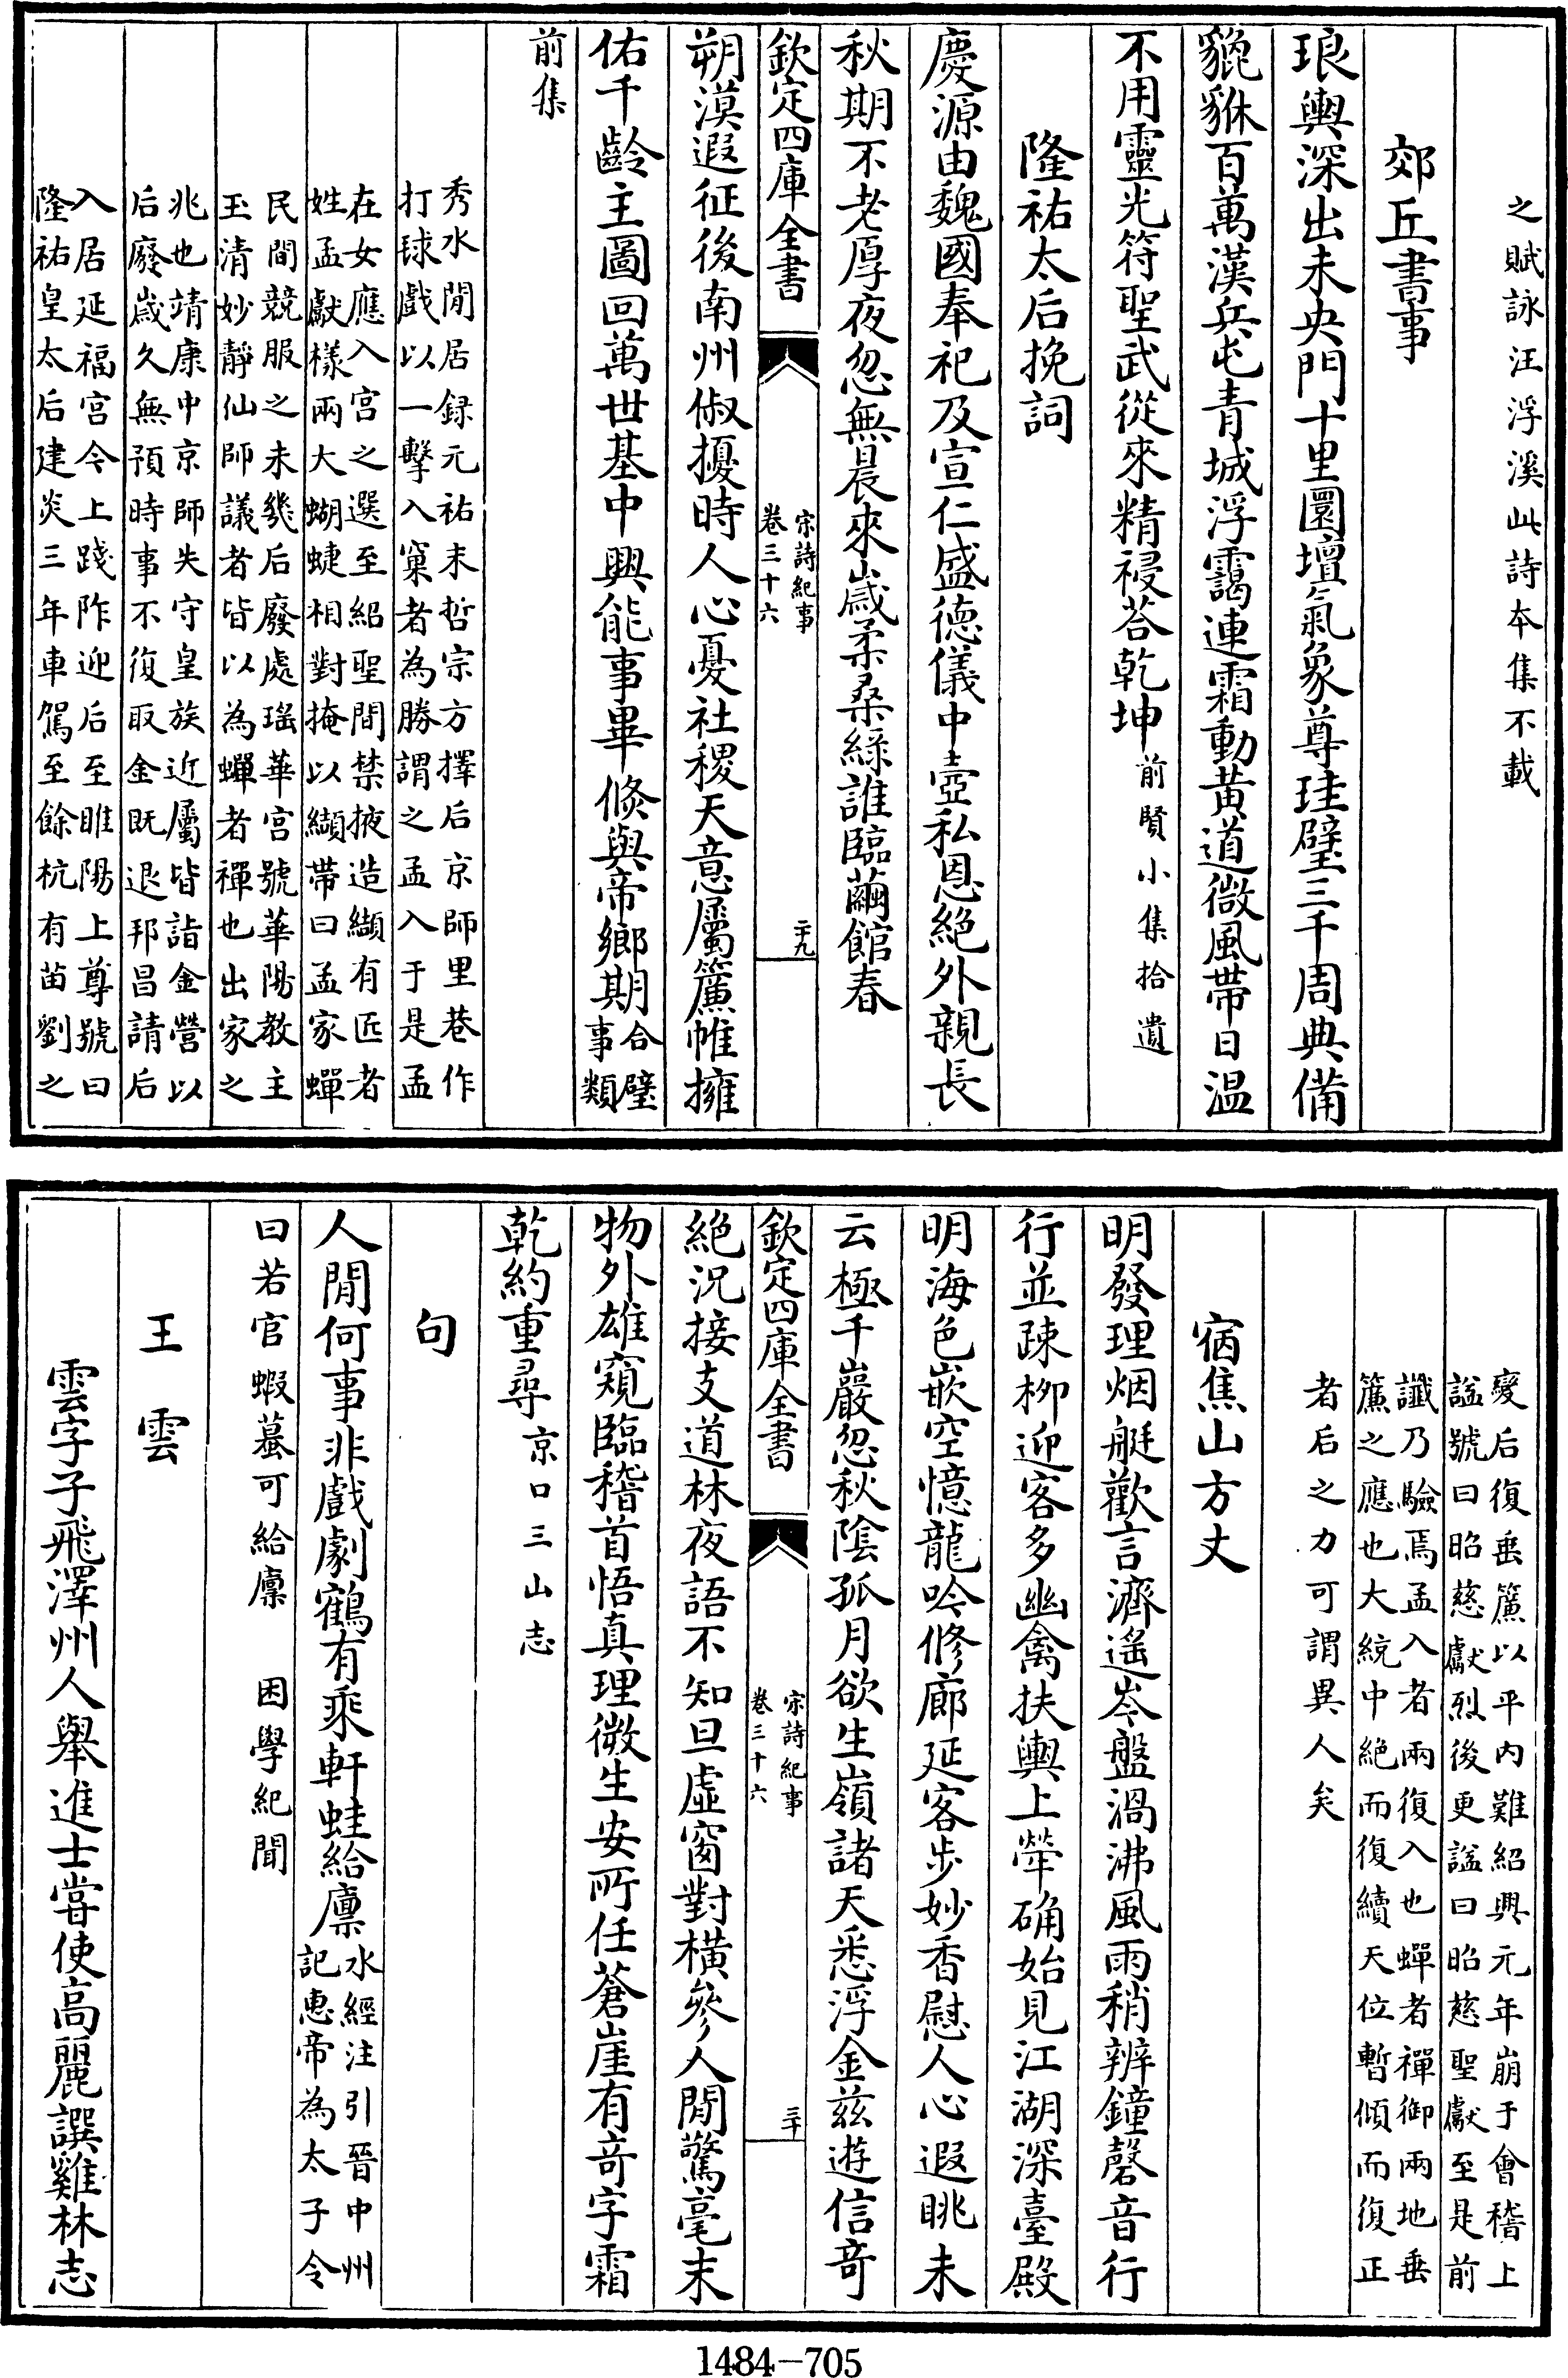 之賦詠汪浮溪此詩本集不載
郊丘書事
琅輿深出未央門十里圜壇氣象尊珪璧三千周典備
貔貅百萬漢兵屯青城浮靄連霜動黃道微風帶日温
不用靈光符聖武從來精祲荅乾坤前賢小集拾遺
隆祐太后挽詞
慶源由魏國奉祀及宣仁盛徳儀中壼私恩絶外親長
秋期不老厚夜忽無晨來嵗柔桑綠誰臨繭館春
欽定四庫全書
宋詩紀事
卷三十六
二十九
朔漠遐征後南州俶擾時人心憂社稷天意屬簾帷擁
佑千齡主圖回萬世基中興能事畢倏與帝鄉期合璧
事類
前集
秀水閒居録元祐末哲宗方擇后京師里巷作
打球戲以一擊入窠者為勝謂之孟入于是孟
在女應入宫之選至紹聖間禁掖造纈有匠者
姓孟獻樣兩大蝴蜨相對掩以纈帶曰孟家蟬
民間競服之未幾后廢處瑶華宫號華陽教主
玉清妙靜仙師議者皆以為蟬者禪也出家之
兆也靖康中京師失守皇族近屬皆詣金營以
后廢嵗久無預時事不復取金既退邦昌請后
入居延福宫今上踐阼迎后至睢陽上尊號曰
隆祐皇太后建炎三年車駕至餘杭有苗劉之
變后復垂簾以平内難紹興元年崩于會稽上
諡號曰昭慈獻烈後更諡曰昭慈聖獻至是前
讖乃驗焉孟入者兩復入也蟬者禪御兩地垂
簾之應也大統中絶而復續天位暫傾而復正
者后之力可謂異人矣
宿焦山方丈
明發理烟艇歡言濟遥岑盤渦沸風雨稍辨鐘磬音行
行並疎栁迎客多幽禽扶輿上犖确始見江湖深臺殿
明海色嵌空憶龍吟修廊延客步妙香慰人心遐眺未
云極千巖忽秋陰孤月欲生嶺諸天悉浮金兹遊信竒
欽定四庫全書
宋詩紀事
卷三十六
三十
絶況接支道林夜語不知旦虛窗對横參人閒驚毫末
物外雄窺臨稽首悟真理微生安所任蒼崖有竒字霜
乾約重尋京口三山志
句
人閒何事非戲劇鶴有乘軒蛙給廩水經注引晉中州
記惠帝為太子令
曰若官蝦蟇可給廩　困學紀聞
王雲
雲字子飛澤州人舉進士嘗使高麗譔雞林志
1484-705